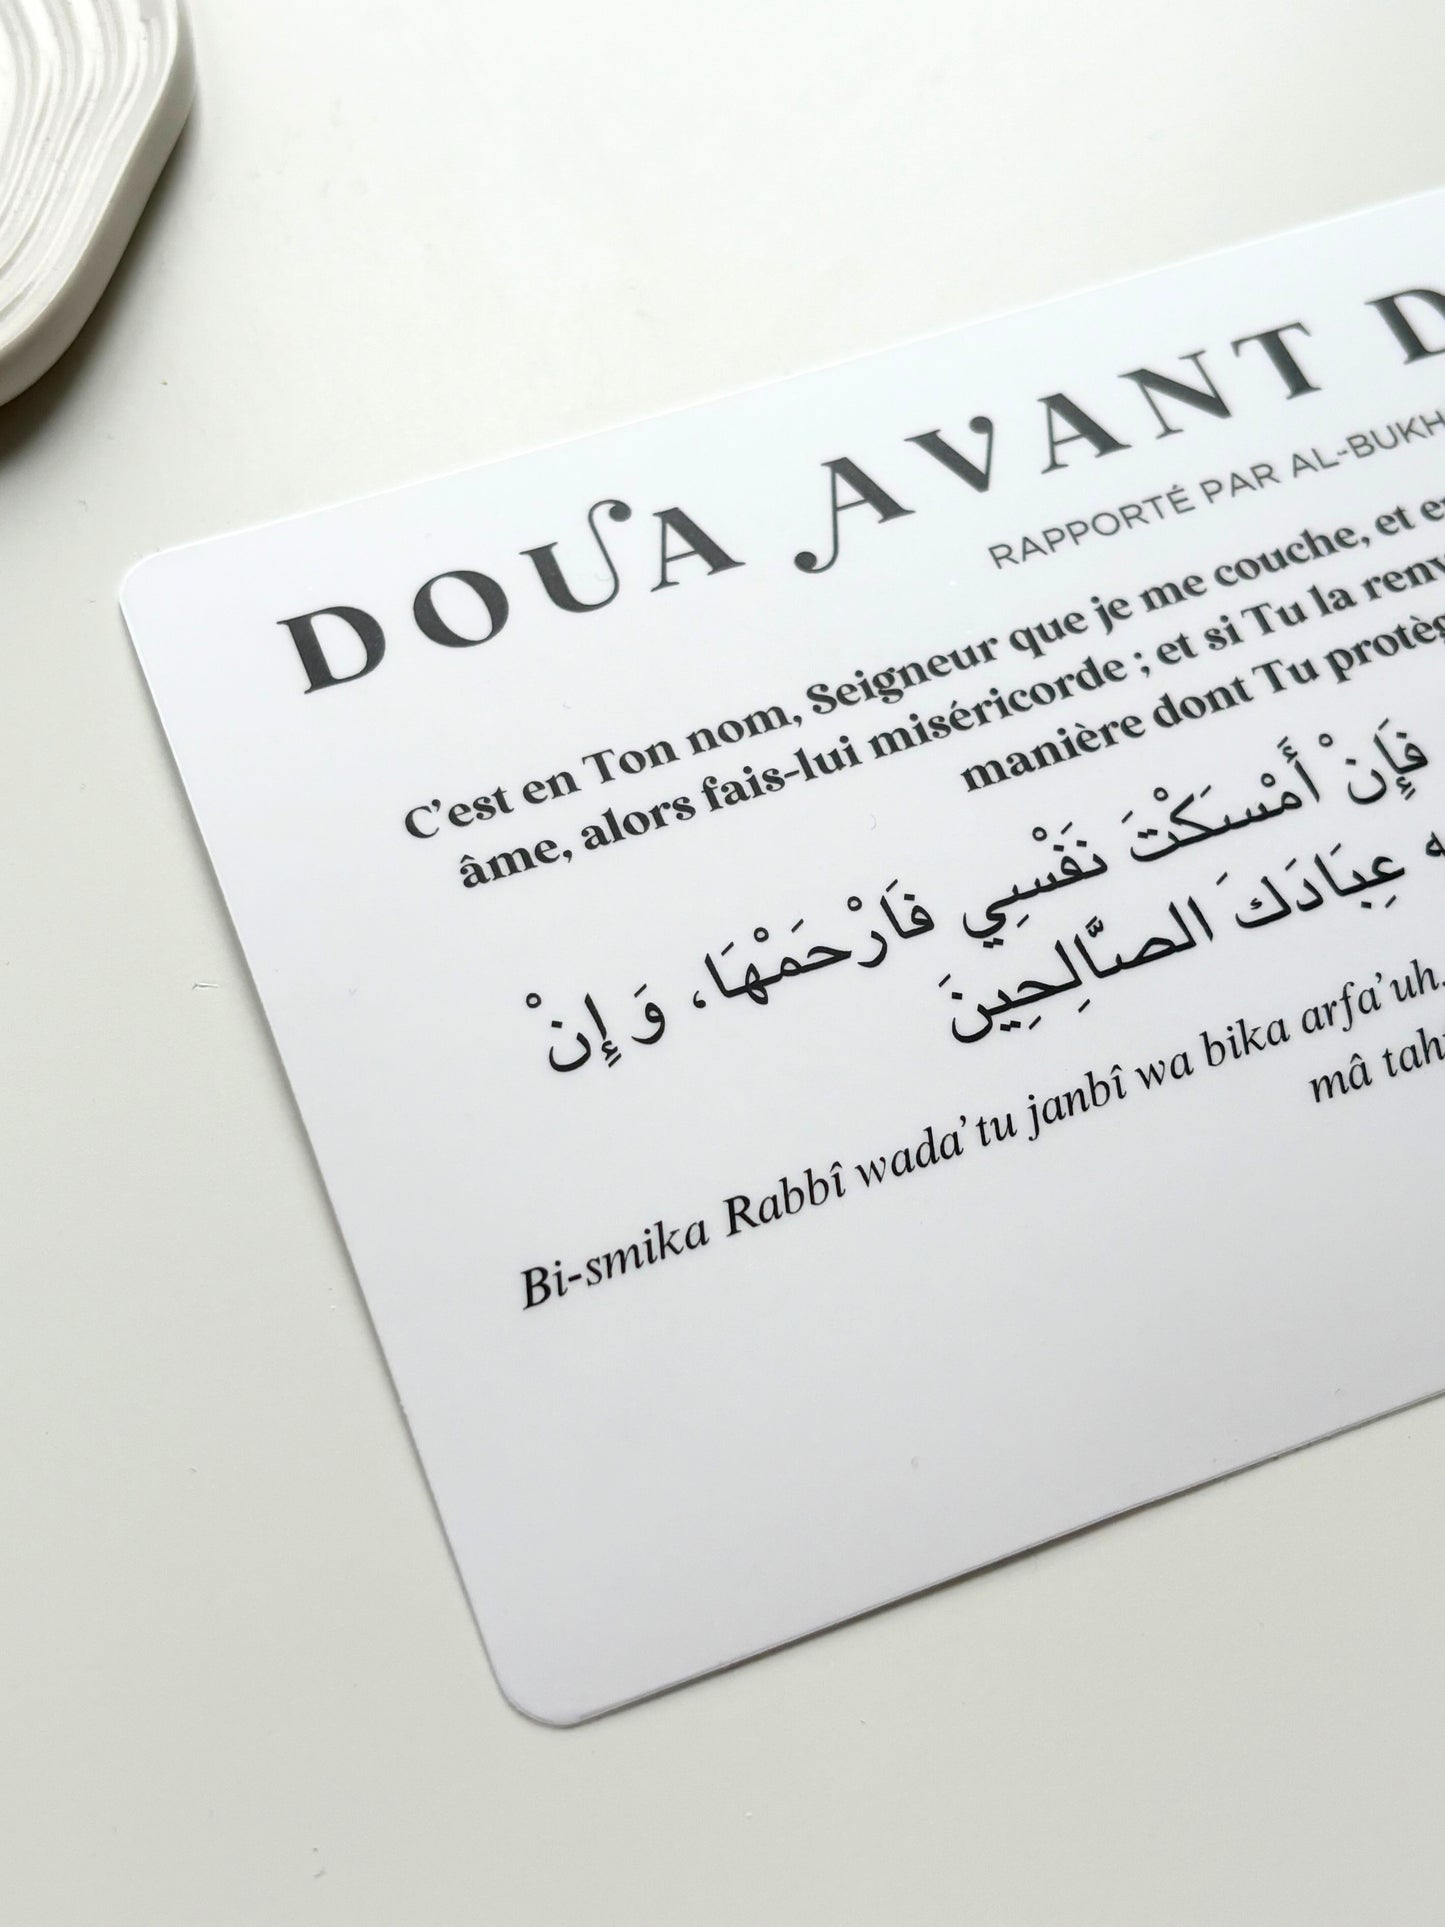 DOUA AVANT D
RAPPORTÉ PAR AL-BUKH
C'est en Ton nom, Seigneur que je me couche, et e
âme, alors fais-lui miséricorde ; et si Tu la renv
manière dont Tu protèg
فَإِنْ أَمْسَكْتَ نَفْسِي فَارْحَمْهَا، وَ إِنْ
ه عِبَادَكَ الصَّالِحِينَ
Bi-smika Rabbî wada'tu janbî wa bika arfa'uh,
mâ tah